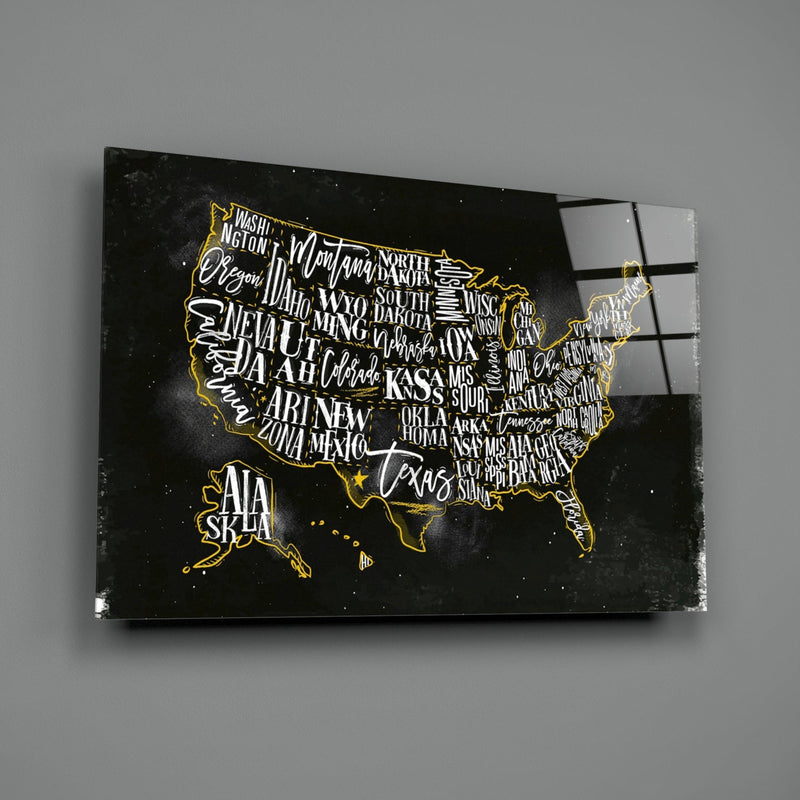 WASHI
NGTON
Oregon
California
IDAHO
NEVA
DA
Montana
WYO
MING
UT
AH
Colorado
ARI
ZONA
NEW
MEXICO
NORTH
DAKOTA
SOUTH
DAKOTA
Nebraska
KANSAS
OKLA
HOMA
Texas
IOWA
MIS
SOURI
ARKA
NSAS
LOUI
SIANA
WISC
ONSIN
Illinois
MI
CHI
GAN
INDI
ANA
Ohio
KENTUCKY
Tennessee
MIS
SIS
SIPPI
ALA
BAMA
GEO
RGIA
Florida
New York
VIRGINIA
ALA
SKA
HI